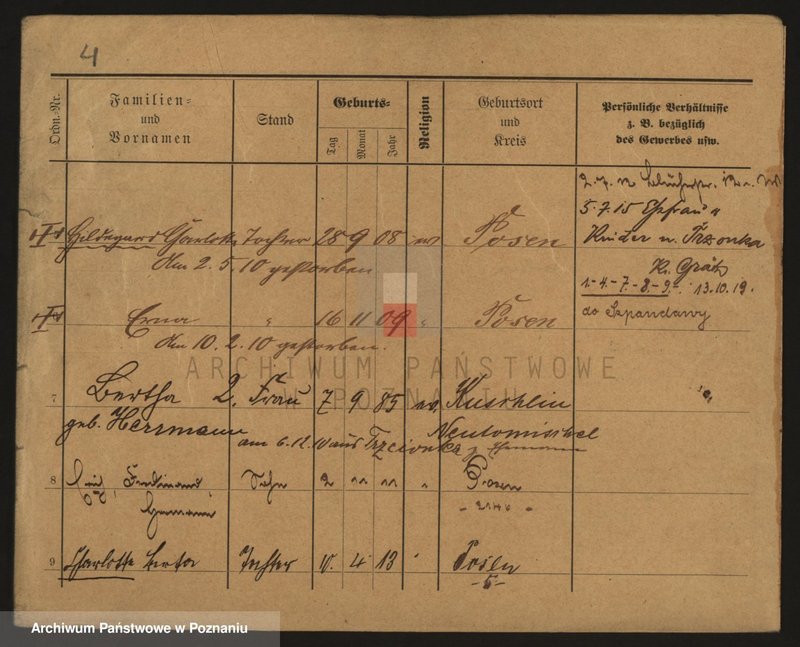 4
Ordn.-Nr.
Familien-
und
Vornamen
Stand
Geburts-
Tag
Monat
Jahr
Religion
Geburtsort
und
Kreis
Persönliche Verhältnisse
z. B. bezüglich
des Gewerbes usw.
5.7.15 Ehefrau u
Hildegard Charlotte Tochter 28 9 08 ev Posen
Kinder n. Trzonka
Am 2.5.10 gestorben
Kr. Grätz
1.-4.-7.-8.-9.- 13.10.19.
Erna " 16 11 09 " Posen
do Szpandawy
Am 10.2.10 gestorben.
ARCHIWUM PAŃSTWOWE
W POZNANIU
7 Bertha 2. Frau 7 9 85 ev Kuschlin
geb. Herrmann
Neutomischel
am 6.12.10 aus Trzcionka z. Ehemann
8 Ferdinand Sohn 2 11 11 " Posen
Hermann
9 Charlotte Berta Tochter 10. 4 13 " Posen
-5-
Archiwum Państwowe w Poznaniu